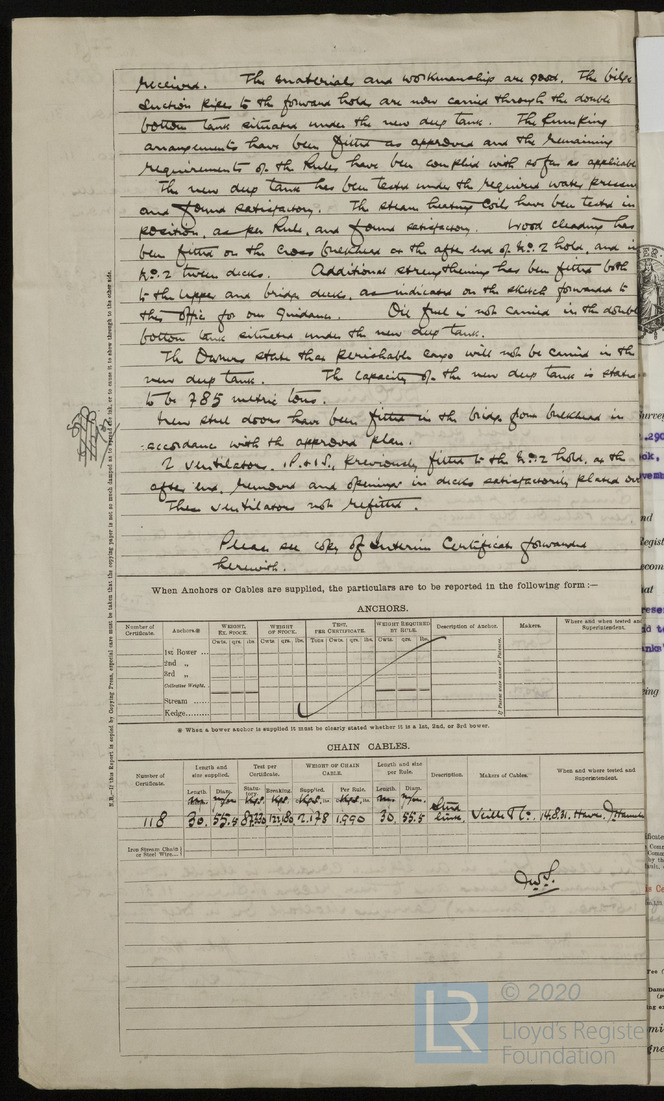 received. The material and workmanship are good. The bilge
suction pipes to the forward hold, are now carried through the double
bottom tank situated under the new deep tank. The Pumping
arrangements have been fitted as approved and the remaining
requirements of the Rules have been complied with so far as applicable
The new deep tank has been tested under the required water pressure
and found satisfactory. The steam heating coils have been tested in
position, as per Rule, and found satisfactory. Wood cleading has
been fitted on the cross bulkhead at the after end of No. 2 hold, and in
No. 2 tween decks. Additional strengthening has been fitted both
to the upper and bridge decks, as indicated on the sketch forwarded to
this office for our guidance. Oil fuel is not carried in the double
bottom tank situated under the new deep tank.
The Owners state that perishable cargo will not be carried in the
new deep tank. The capacity of the new deep tank is stated
to be 785 metric tons.
steel doors have been fitted in the bridge front bulkhead in
accordance with the approved plan.
2 ventilators, P. & S., previously fitted to the No. 2 hold, at the
after end, removed and openings in decks satisfactorily plated over
These ventilators not refitted.
Please see copy of Interim Certificate forwarded
herewith.
When Anchors or Cables are supplied, the particulars are to be reported in the following form :—
ANCHORS.
Number of Certificate. Anchors.* WEIGHT, EX. STOCK. WEIGHT OF STOCK. TEST, PER CERTIFICATE. WEIGHT REQUIRED BY RULE. Description of Anchor. Makers. Where and when tested and Superintendent.
Cwts. qrs. lbs. Cwts. qrs. lbs. Tons Cwts. qrs. lbs. Cwts. qrs. lbs.
1st Bower ...
2nd „
3rd „
Collective Weight.
Stream ......
Kedge.........
* When a bower anchor is supplied it must be clearly stated whether it is a 1st, 2nd, or 3rd bower.
CHAIN CABLES.
Number of Certificate. Length and size supplied. Test per Certificate. WEIGHT OF CHAIN CABLE. Length and size per Rule. Description. Makers of Cables. When and where tested and Superintendent.
Length. Diam. Statutory. Breaking. Supplied. Per Rule. Length. Diam.
118 30. 55.5 87330 122,180 2.178 1.990 30. 55.5 Stud link. 14.8.31.
Iron Stream Chain or Steel Wire...
© 2020
LR Lloyd's Register
Foundation